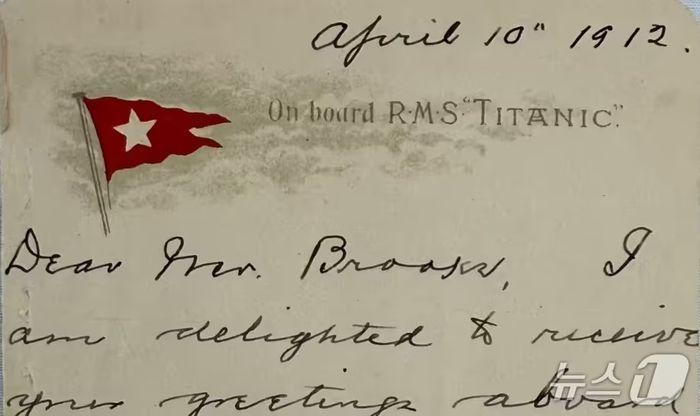 April 10" 1912.
On board R·M·S "TITANIC".
Dear Mr. Brooks, I
am delighted to receive
your greetings aboard
뉴스1